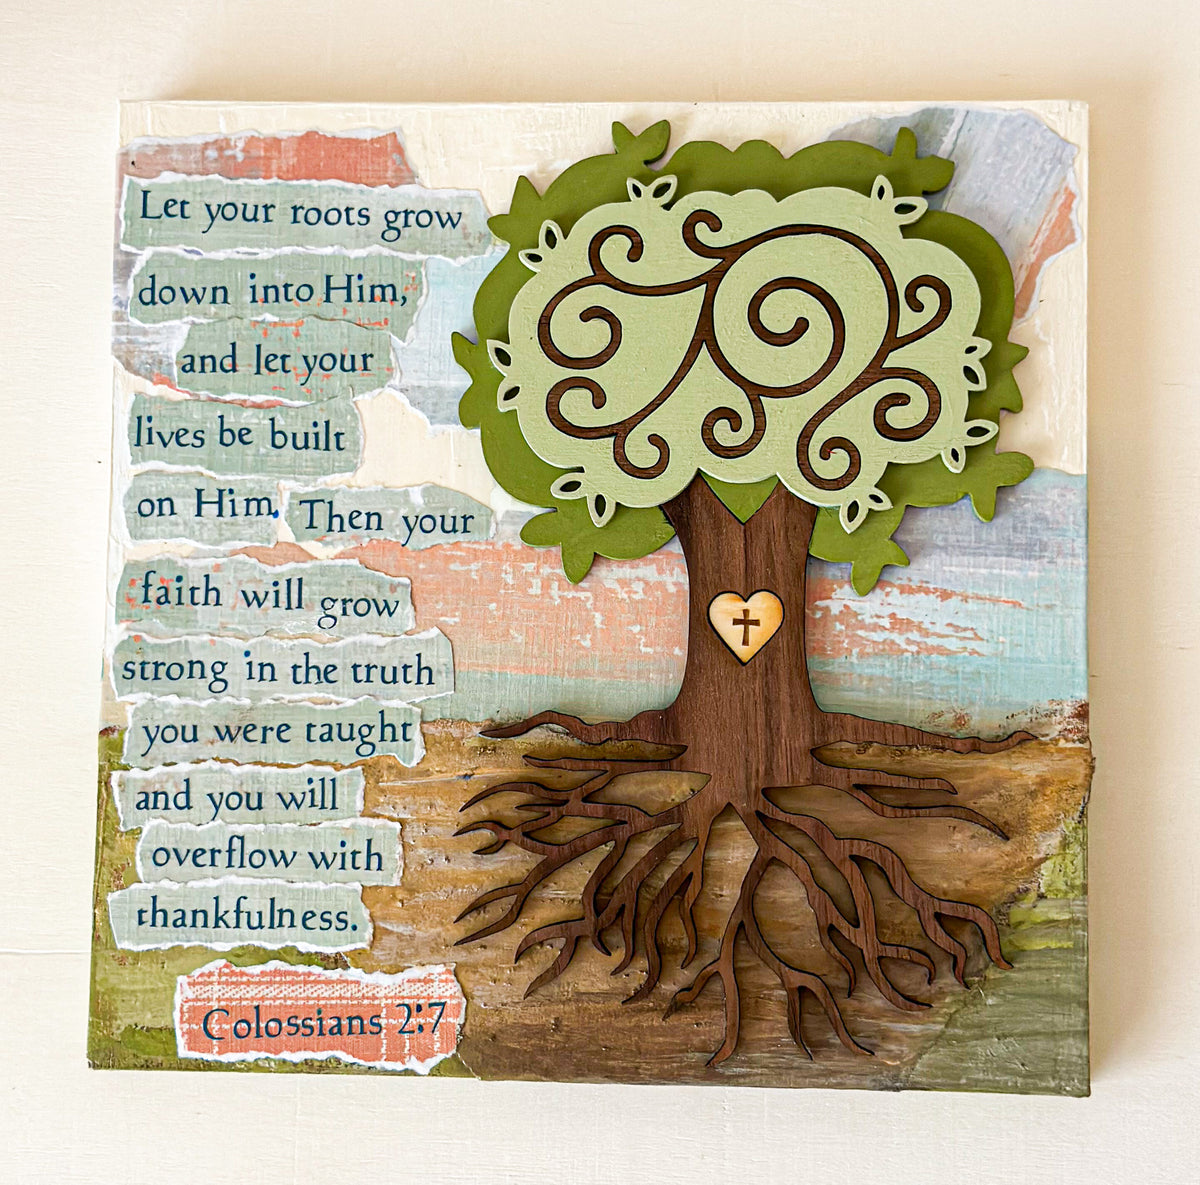 Let your roots grow
down into Him,
and let your
lives be built
on Him. Then your
faith will grow
strong in the truth
you were taught
and you will
overflow with
thankfulness.
Colossians 2:7